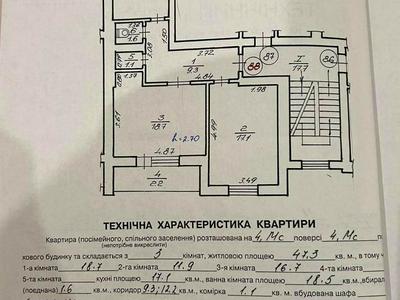 1.24
6
1.6
5
1.1
1.37
0.80
3.08
1.50
3.72
1
9.3
4.84
88
87
I
17.7
86
3.61
3
18.7
h=2.70
4.99
1.98
2
17.1
4.87
4
2.2
3.49
ТЕХНІЧНА ХАРАКТЕРИСТИКА КВАРТИРИ
Квартира (посімейного, спільного заселення) розташована на 4, Мс поверсі 4, Мс
(непотрібне викреслити)
кового будинку та складається з 3 кімнат, житловою площею 47.3 кв. м, в тому чи
1-а кімната 18.7 2-га кімната 11.9 3-я кімната 16.7 4-та кімната
5-та кімната кухні площею 17.1 кв.м., ванна кімната площею 18.5 кв.м, вбирал
(поєднана) 1.6 кв.м., коридор 9.3; 12.2 кв.м, комірка 1.1 кв.м, вбудована шафа